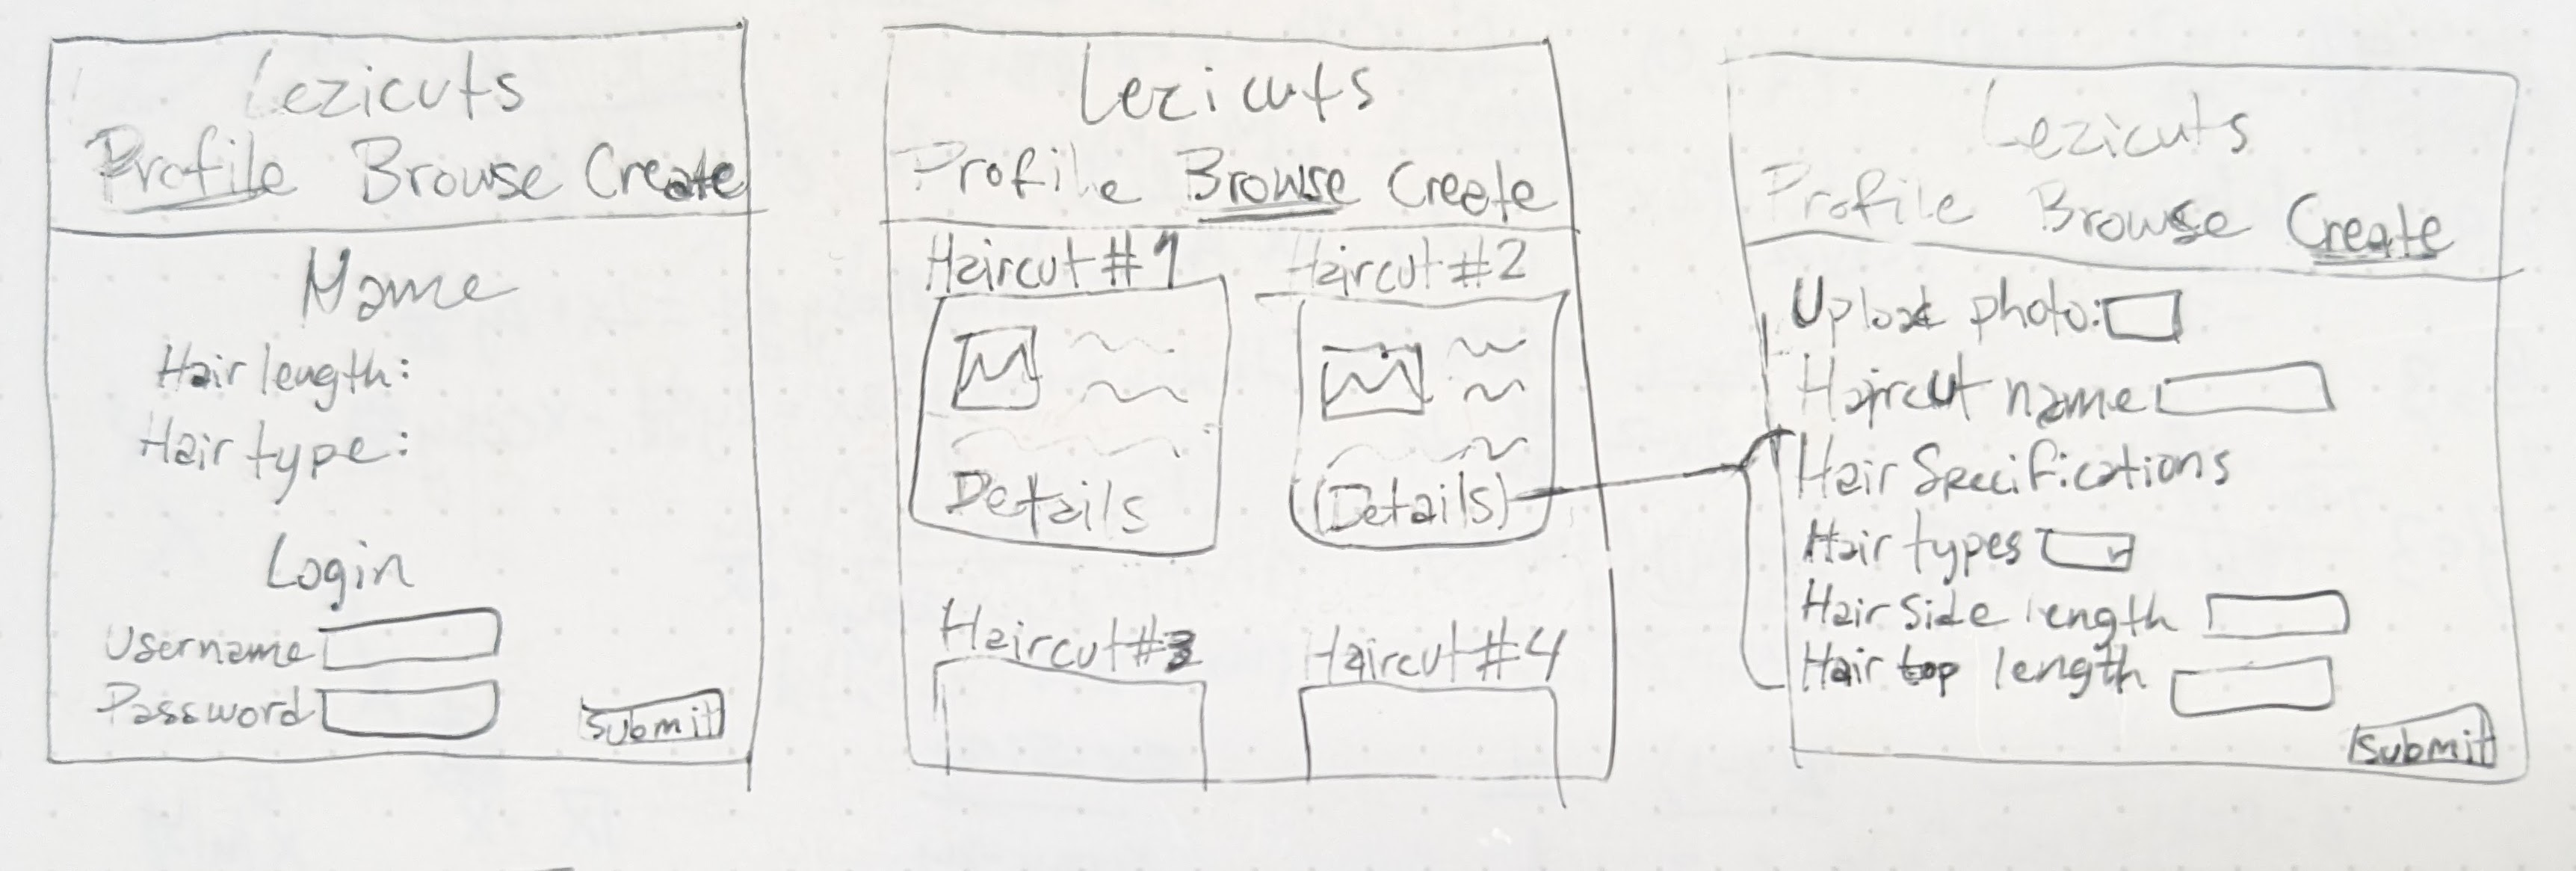 Lezicuts
Profile Browse Create
Name
Hair length:
Hair type:
Login
Username
Password
Submit
Lezicuts
Profile Browse Create
Haircut #1 Haircut #2
Details (Details)
Haircut #3 Haircut #4
Lezicuts
Profile Browse Create
Upload photo:
Haircut name
Hair Specifications
Hair types
Hair Side length
Hair top length
Submit